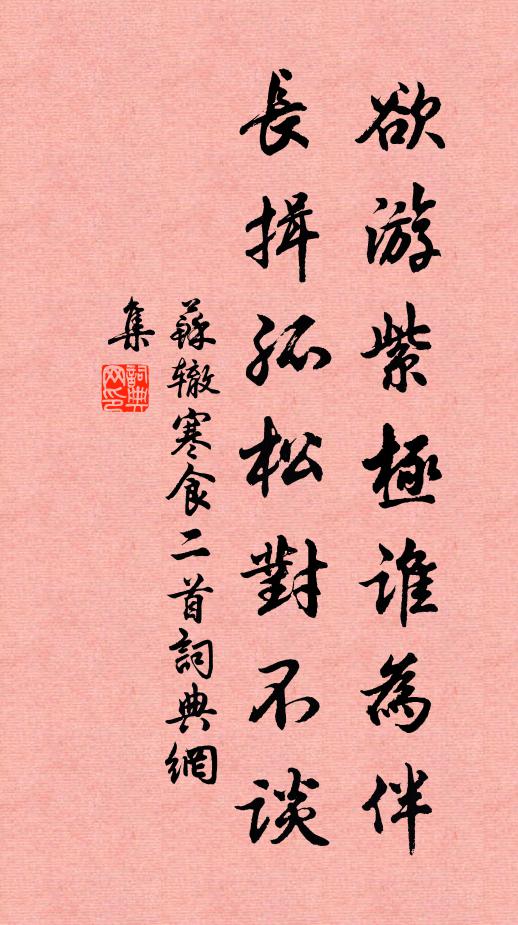 欲游紫極谁為伴
長揖孤松對不谈
蘇辙寒食二首詞典網
集
詞典
网印